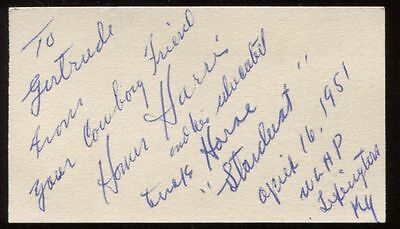 To
Gertrude
from
your Cowboy Friend
Homer Harris
and his educated
Horse
"Stardust"
April 16, 1951
WLAP
Lexington
Ky